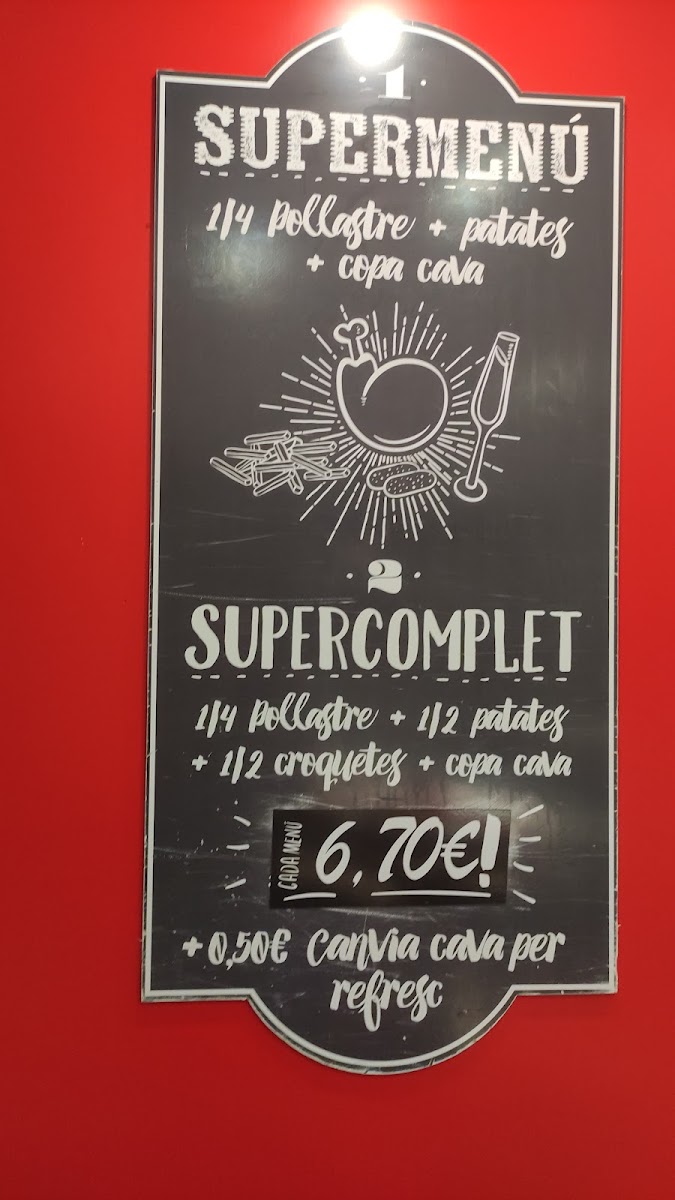 · 1 ·
SUPERMENÚ
1/4 pollastre + patates
+ copa cava
· 2 ·
SUPERCOMPLET
1/4 pollastre + 1/2 patates
+ 1/2 croquetes + copa cava
CADA MENÚ
6,70€!
+0,50€ Canvia cava per
refresc